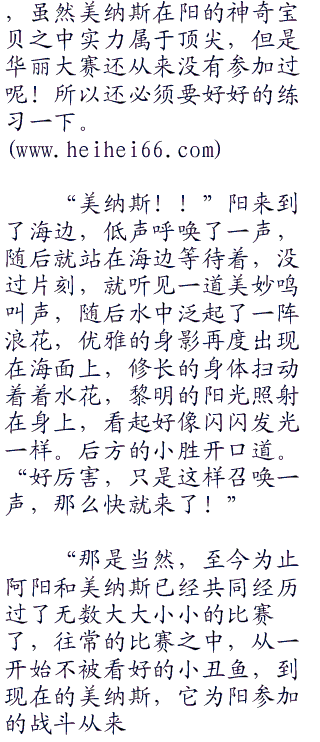 ，虽然美纳斯在阳的神奇宝
贝之中实力属于顶尖，但是
华丽大赛还从来没有参加过
呢！所以还必须要好好的练
习一下。
(www.heihei66.com)
“美纳斯！！”阳来到
了海边，低声呼唤了一声，
随后就站在海边等待着，没
过片刻，就听见一道美妙鸣
叫声，随后水中泛起了一阵
浪花，优雅的身影再度出现
在海面上，修长的身体扫动
着着水花，黎明的阳光照射
在身上，看起好像闪闪发光
一样。后方的小胜开口道。
“好厉害，只是这样召唤一
声，那么快就来了！”
“那是当然，至今为止
阿阳和美纳斯已经共同经历
过了无数大大小小的比赛
了，往常的比赛之中，从一
开始不被看好的小丑鱼，到
现在的美纳斯，它为阳参加
的战斗从来